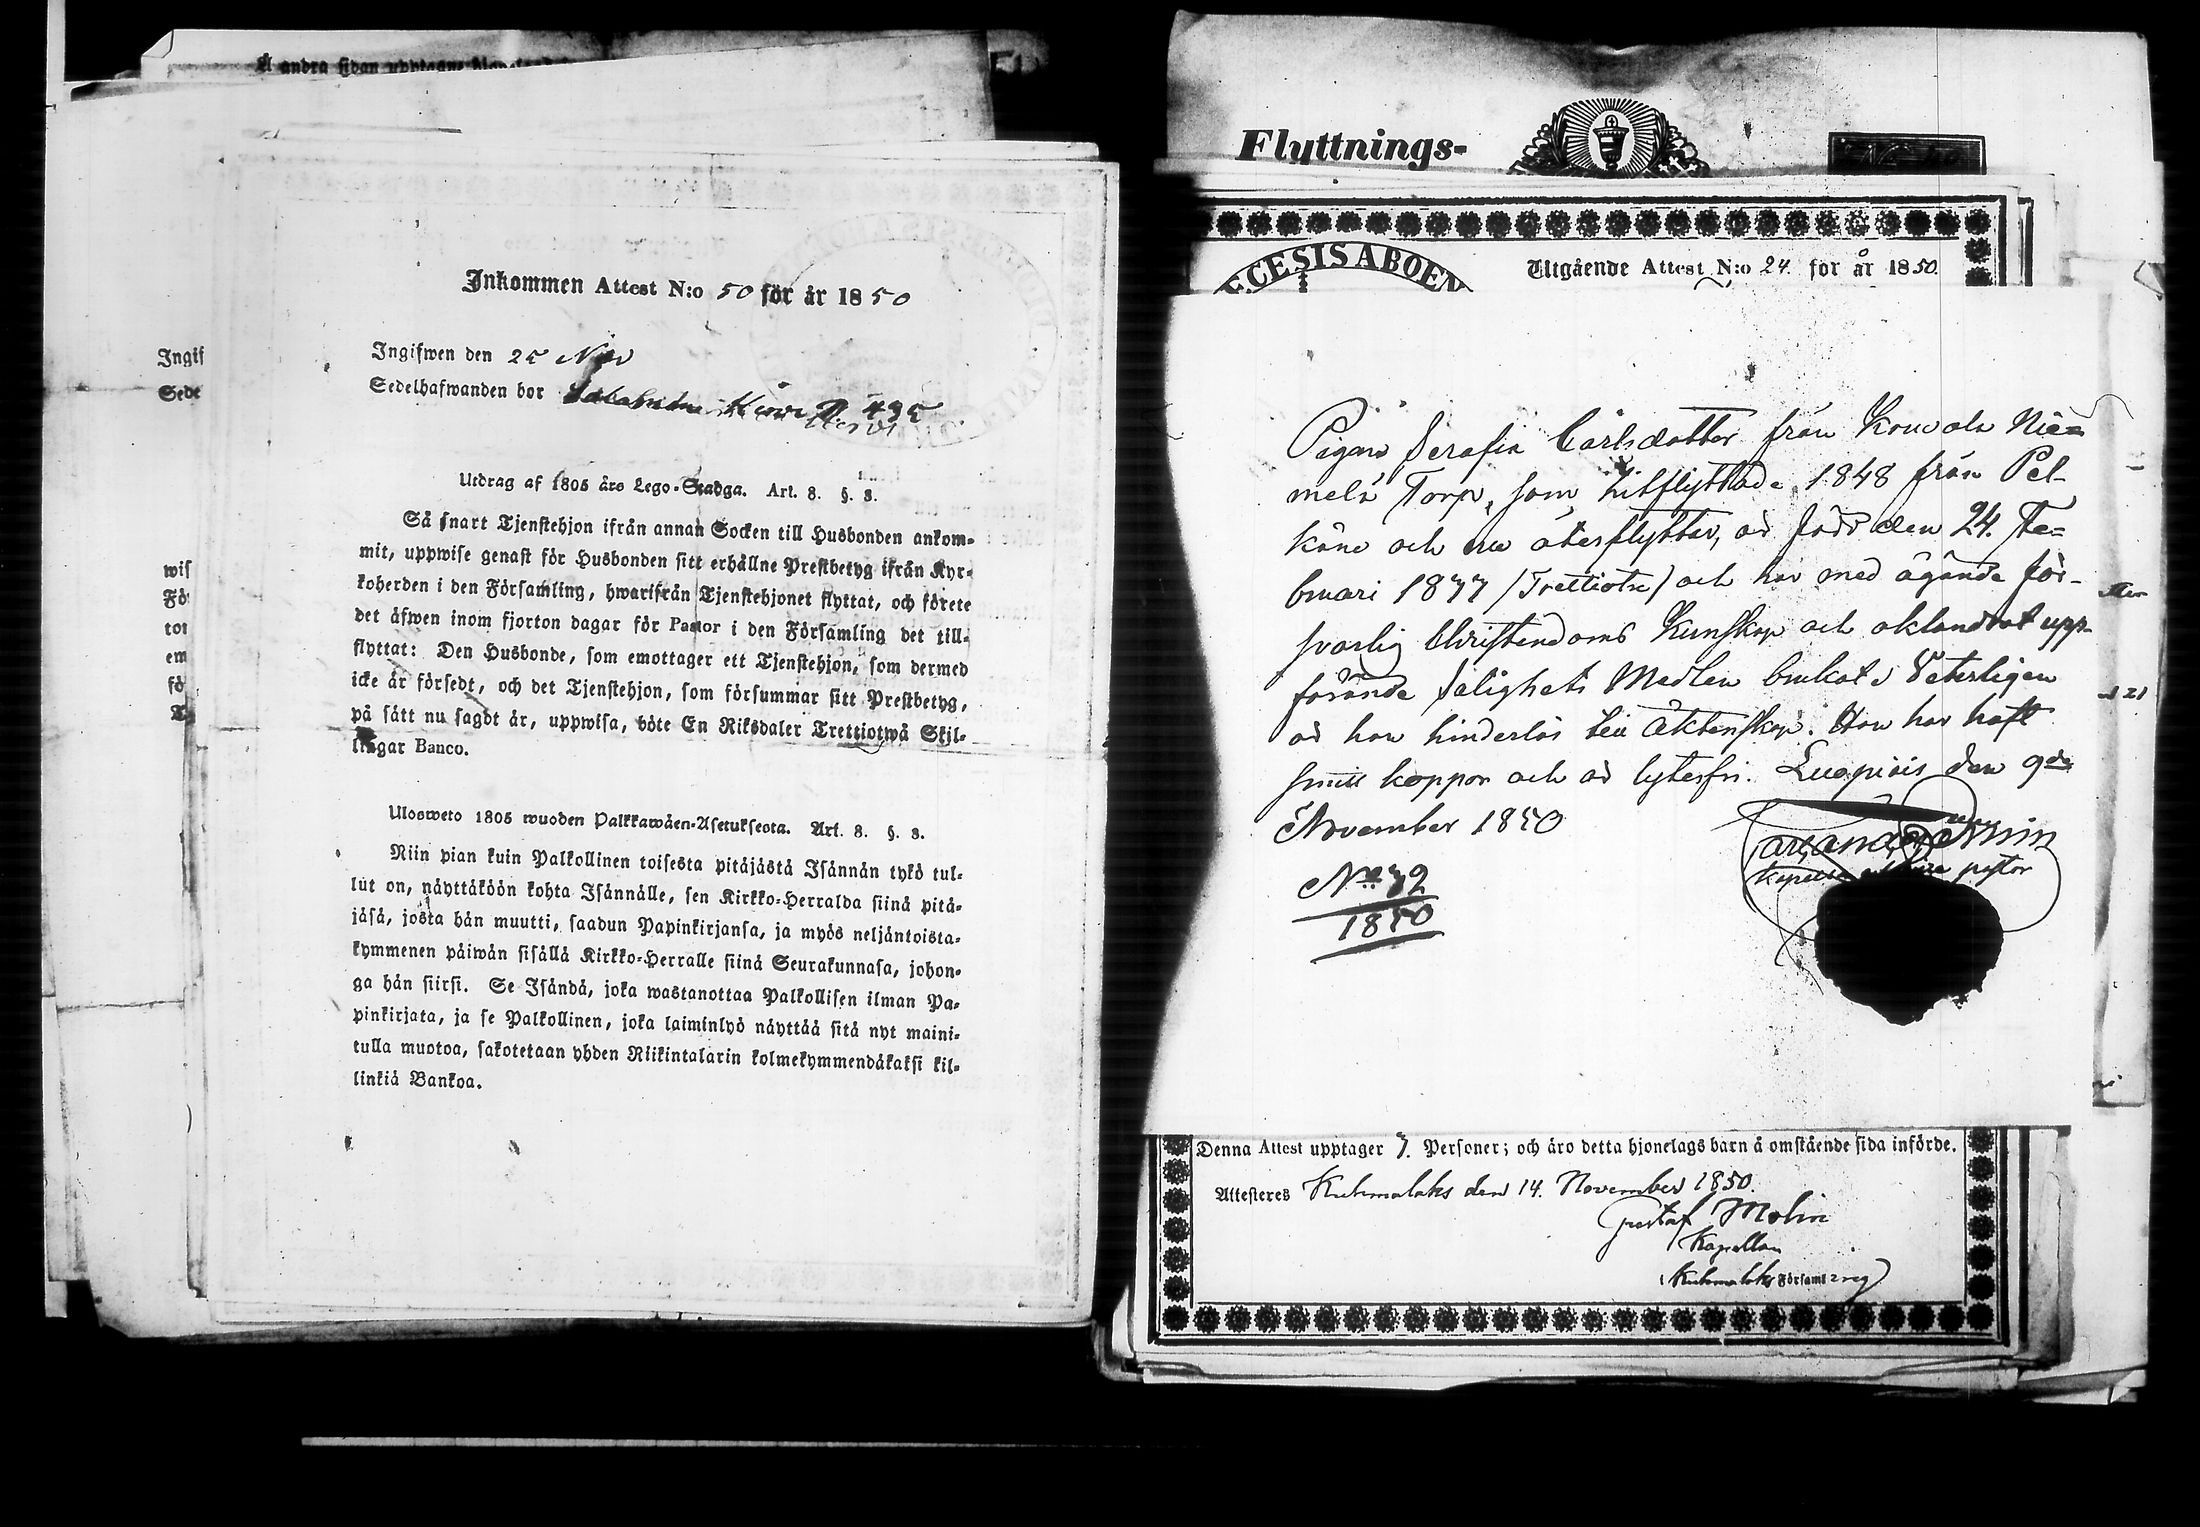 Å andra sidan upptagne
Inkommen Attest N:o 50 för år 1850
Ingifwen den 25 Nov
Sedelhafwanden bor
Utdrag af 1805 års Lego-Stadga. Art. 8. §. 8.
Så snart Tjenstehjon ifrån annan Socken till Husbonden ankom-
mit, uppwise genast för Husbonden sitt erhållne Prestbetyg ifrån Kyr-
koherden i den Församling, hwarifrån Tjenstehjonet flyttat, och förete
det äfwen inom fjorton dagar för Pastor i den Församling det till-
flyttat: Den Husbonde, som emottager ett Tjenstehjon, som dermed
icke är försedt, och det Tjenstehjon, som försummar sitt Prestbetyg,
på sätt nu sagdt är, uppwisa, böte En Riksdaler Trettiotwå Skil-
lingar Banco.
Ulosweto 1805 wuoden Palkkawäen-Asetuksesta. Art. 8. §. 8.
Niin pian kuin Palkollinen toisesta pitäjästä Isännän tykö tul-
lut on, näyttäköön kohta Isännälle, sen Kirkko-Herralda siinä pitä-
jäsä, josta hän muutti, saadun Papinkirjansa, ja myös neljäntoista-
kymmenen päiwän sisällä Kirkko-Herralle siinä Seurakunnasa, johon-
ga hän siirsi. Se Isändä, joka wastanottaa Palkollisen ilman Pa-
pinkirjata, ja se Palkollinen, joka laiminlyö näyttää sitä nyt maini-
tulla muotoa, sakotetaan yhden Riikintalarin kolmekymmendäkaksi kil-
linkiä Bankoa.
Ingif
Sede
wis
Fö
tor
em
fö
Flyttnings-
ECESIS ABOEN
Utgående Attest N:o 24. för år 1850.
Pigan Serafia Carlsdotter från Kouvola Nie=
melä Torp, som hitflyttade 1848 från Pel-
käne och nu återflyttar, är född den 24. Fe=
bruari 1833 /Trettiotre/ och har med ägande för-
svarlig Christendoms Kunskap och oklandrat upp-
förande Salighets Medlen brukat. Veterligen
är hon hinderlös till Äktenskap. Hon har haft
smitt koppor och är lytesfri. Luopiois den 9de
November 1850
No 32
1850
pastor
Denna Attest upptager 7. Personer; och äro detta hjonelags barn å omstående sida införde.
Attesteres Kuhmalaks den 14. November 1850.
Gustaf Molin
Kapellan
(Kuhmalaks Församl:ing)